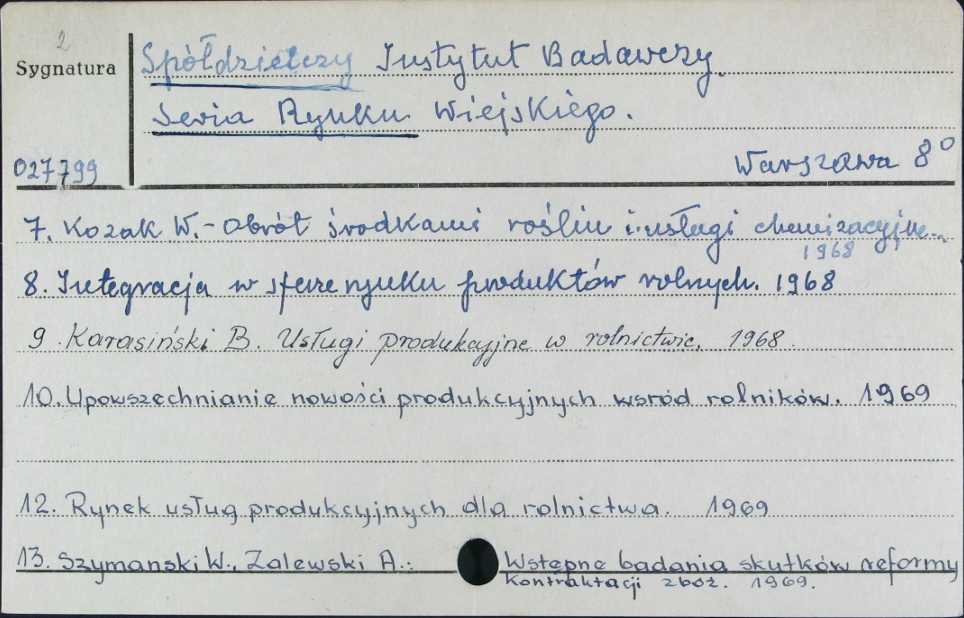 2
Sygnatura
Spółdzielczy Instytut Badawczy.
Seria Rynku Wiejskiego.
027799
Warszawa 8°
7. Kozak W.- Obrót środkami roślin i usługi chemizacyjne.
1968
8. Integracja w sferze rynku produktów rolnych. 1968
9. Karasiński B. Usługi produkcyjne w rolnictwie. 1968.
10. Upowszechnianie nowości produkcyjnych wsród rolników. 1969
12. Rynek usług produkcyjnych dla rolnictwa. 1969
13. Szymanski W., Zalewski A.: Wstępne badania skutków reformy
kontraktacji zboż. 1969.